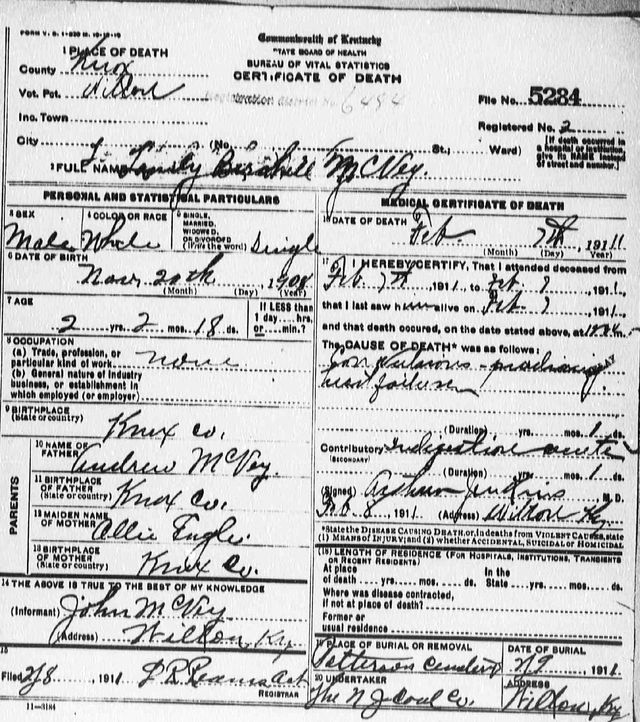 FORM V. S. 1-
Commonwealth of Kentucky
STATE BOARD OF HEALTH
BUREAU OF VITAL STATISTICS
CERTIFICATE OF DEATH
1 PLACE OF DEATH
County Knox
Vot. Pct. Wilton
Registration District No. 6484
File No. 5284
Inc. Town
Registered No. 2
City (No. St.; Ward)
[If death occurred in a hospital or institution, give its NAME instead of street and number.]
2 FULL NAME McVey.
PERSONAL AND STATISTICAL PARTICULARS
3 SEX Male
4 COLOR OR RACE White
5 SINGLE, MARRIED, WIDOWED OR DIVORCED (Write the word) Single
6 DATE OF BIRTH
Nov 20th, 1908
(Month) (Day) (Year)
7 AGE
2 yrs. 2 mos. 18 ds.
If LESS than 1 day....hrs. or....min.?
8 OCCUPATION
(a) Trade, profession, or particular kind of work none
(b) General nature of industry business, or establishment in which employed (or employer)
9 BIRTHPLACE
(State or country) Knox Co.
PARENTS
10 NAME OF FATHER Andrew McVey.
11 BIRTHPLACE OF FATHER
(State or country) Knox Co.
12 MAIDEN NAME OF MOTHER Allie Engle.
13 BIRTHPLACE OF MOTHER
(State or country) Knox Co.
14 THE ABOVE IS TRUE TO THE BEST OF MY KNOWLEDGE
(Informant) John McVey
(Address) Wilton, Ky
15
Filed 2/8, 1911
REGISTRAR
11-3184
MEDICAL CERTIFICATE OF DEATH
16 DATE OF DEATH
Feb. 7th, 1911
(Month) (Day) (Year)
17 I HEREBY CERTIFY, That I attended deceased from
Feb 7th, 1911, to Feb 7, 1911,
that I last saw him alive on Feb 7, 1911,
and that death occured, on the date stated above, at
The CAUSE OF DEATH* was as follows:
heart failure
(Duration) yrs. mos. 1 ds.
Contributory Indigestion acute
(SECONDARY)
(Duration) yrs. mos. 1 ds.
(Signed) Arthur Jenkins M. D.
Feb 8, 1911 (Address) Wilton Ky.
*State the DISEASE CAUSING DEATH, or, in deaths from VIOLENT CAUSES, state (1) MEANS OF INJURY; and (2) whether ACCIDENTAL, SUICIDAL or HOMICIDAL
(18) LENGTH OF RESIDENCE (FOR HOSPITALS, INSTITUTIONS, TRANSIENTS OR RECENT RESIDENTS)
At place of death yrs. mos. ds. In the State yrs. mos. ds.
Where was disease contracted, if not at place of death?
Former or usual residence
19 PLACE OF BURIAL OR REMOVAL
Patterson Cemetery
DATE OF BURIAL
2/9, 1911
20 UNDERTAKER
The N J Coal Co.
ADDRESS
Wilton, Ky